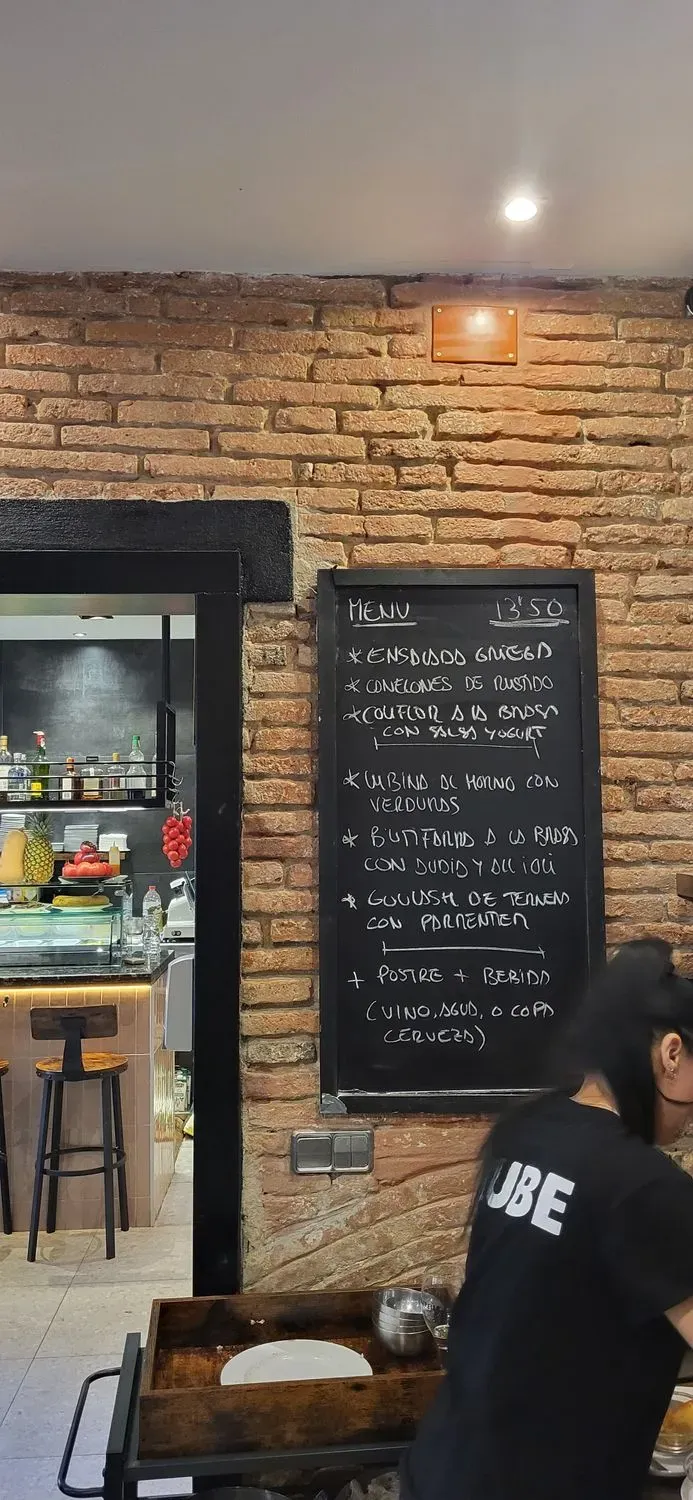 MENU 13'50
* ENSALADA GRIEGA
* CANELONES DE RUSTIDO
* COLIFLOR A LA BRASA
CON SALSA YOGURT
* LUBINA AL HORNO CON
VERDURAS
* BUTIFARRA A LA BRASA
CON JUDIA Y ALL I OLI
* GOULASH DE TERNERA
CON PARMENTIER
+ POSTRE + BEBIDA
(VINO, AGUA, O COPA
CERVEZA)
UBE